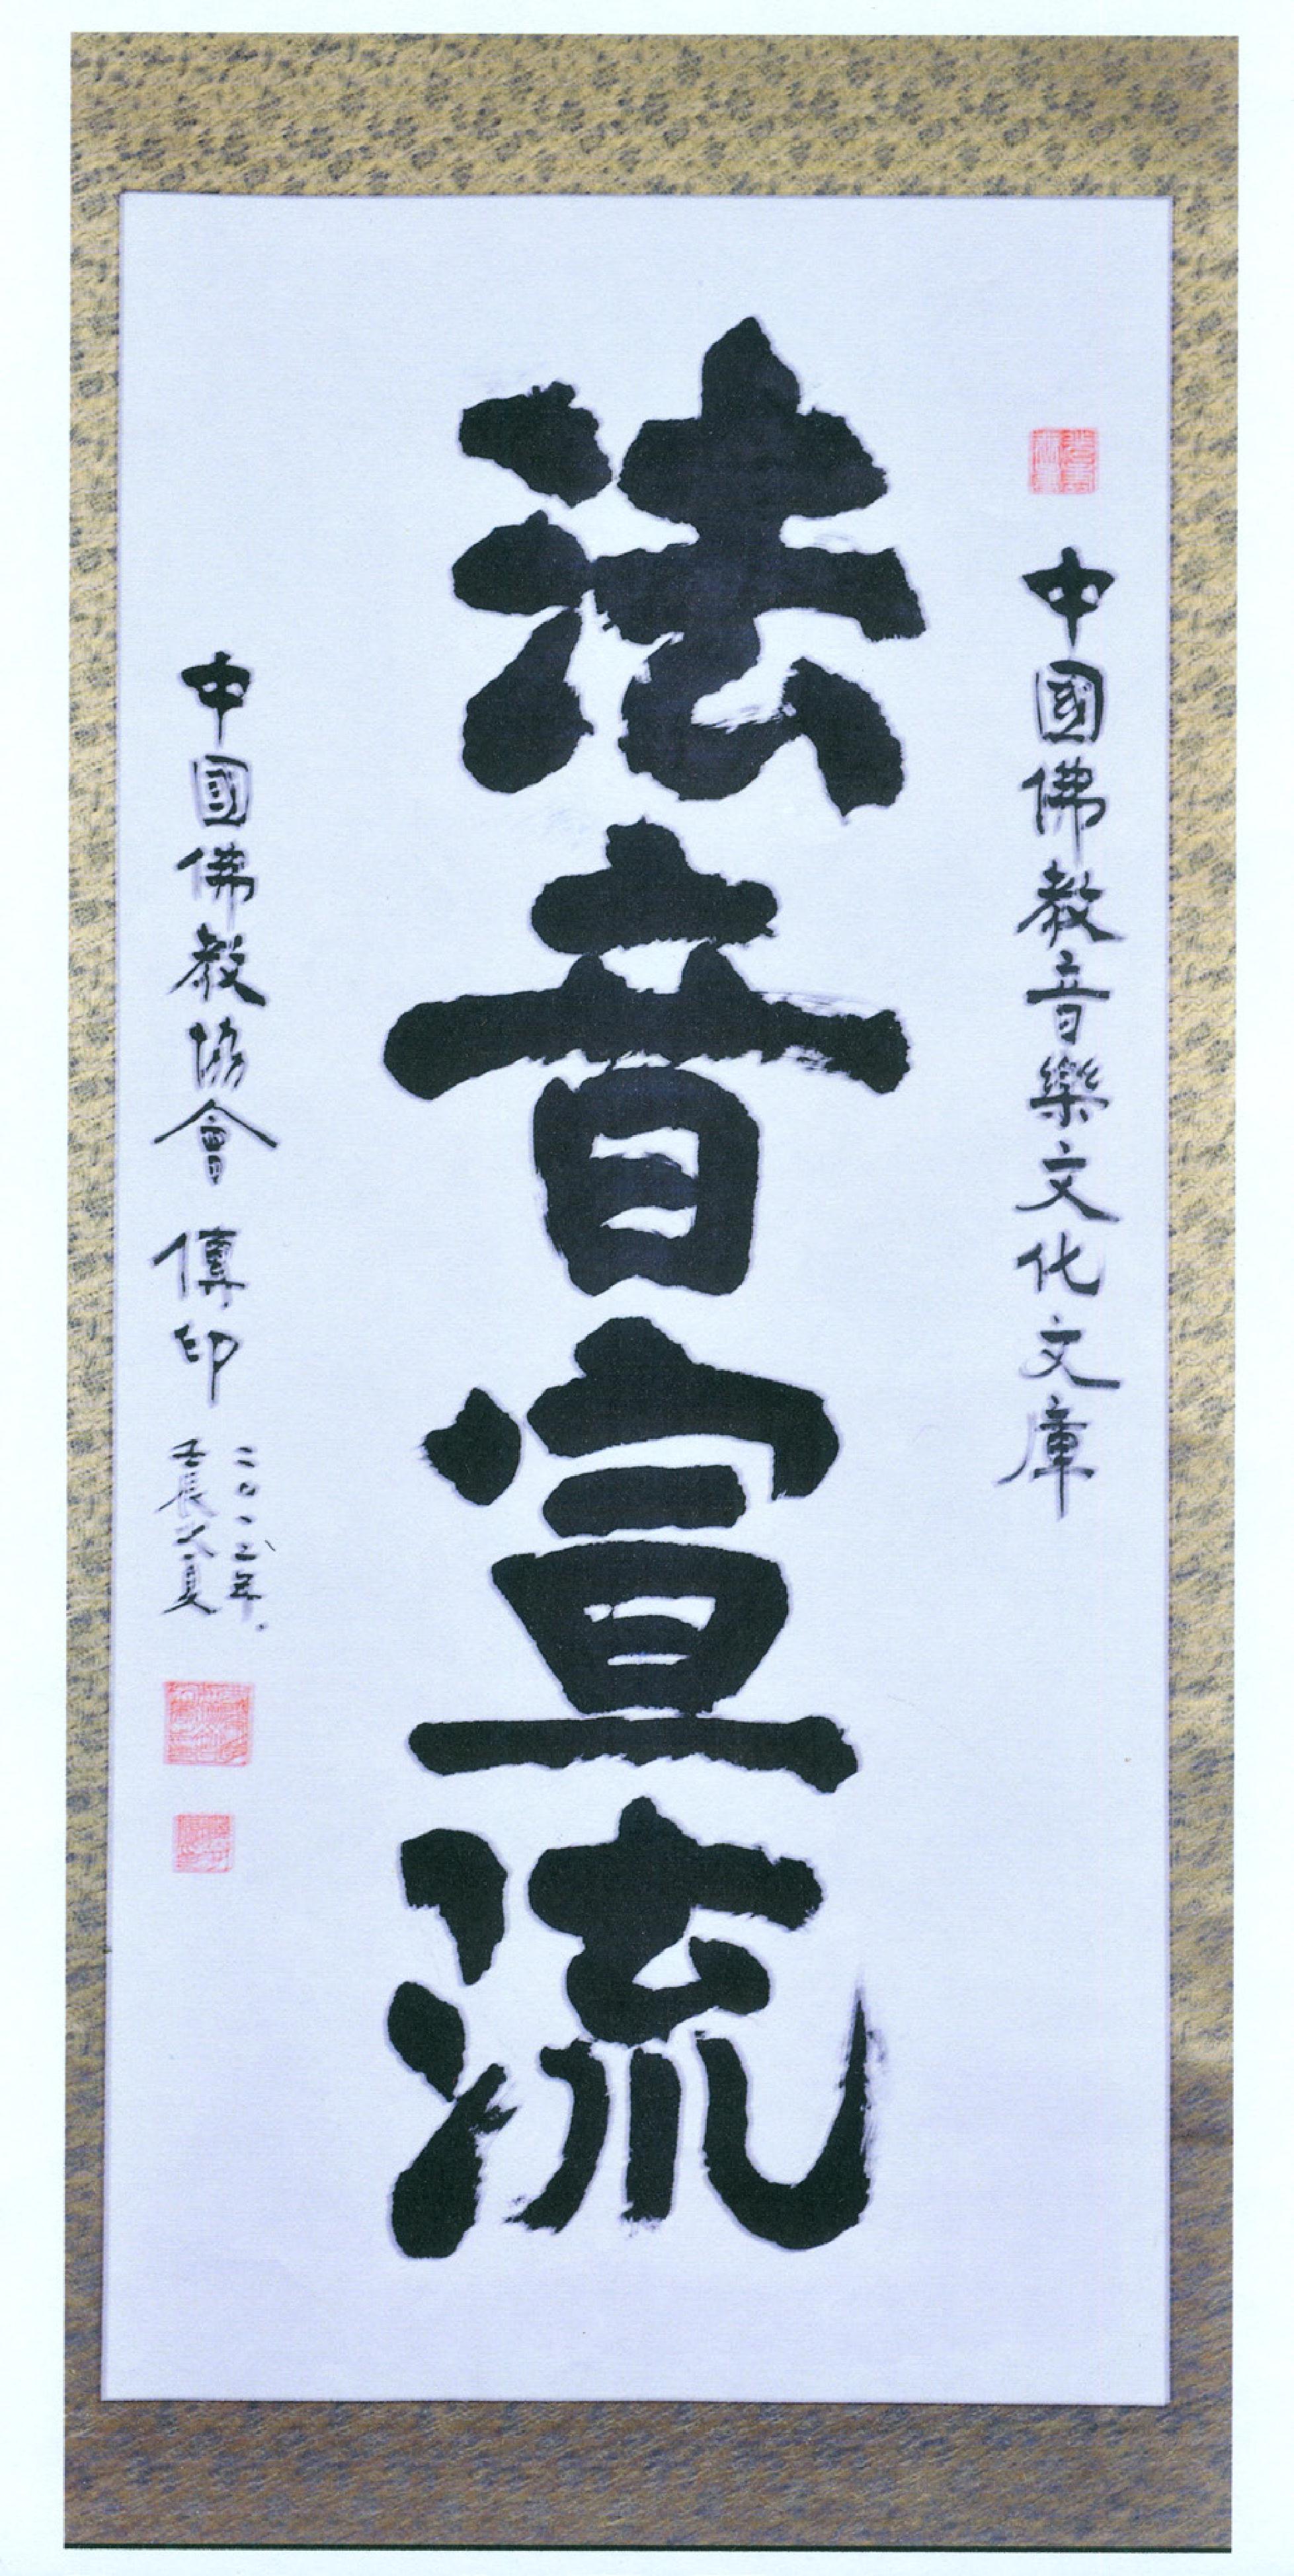 中國佛教音樂文化文庫
法音宣流
中國佛教協會 傳印
二〇一二年
壬辰之夏